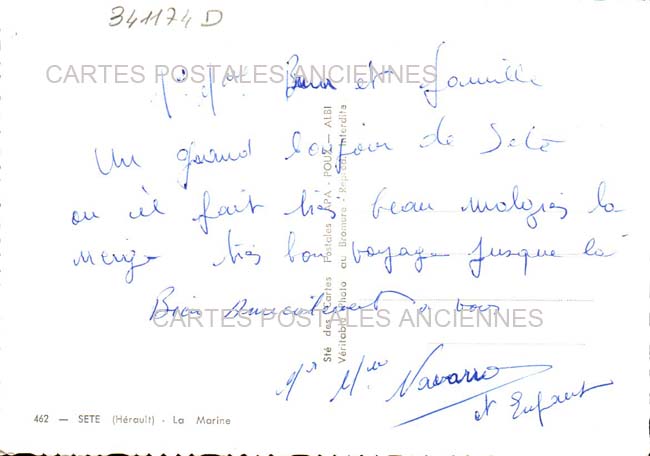 341174 D
CARTES POSTALES ANCIENNES
et famille
Un grand bonjour de Sete
ou il fait très beau malgrés la
neige très bon voyage jusque là
Bien Amicalement a vous
CARTES POSTALES ANCIENNES
Mr Mme Navarro
et Enfant
Sté des Cartes Postales APA - POUX — ALBI
Véritable Photo au Bromure - Reprod. Interdite
462 — SETE (Hérault) - La Marine